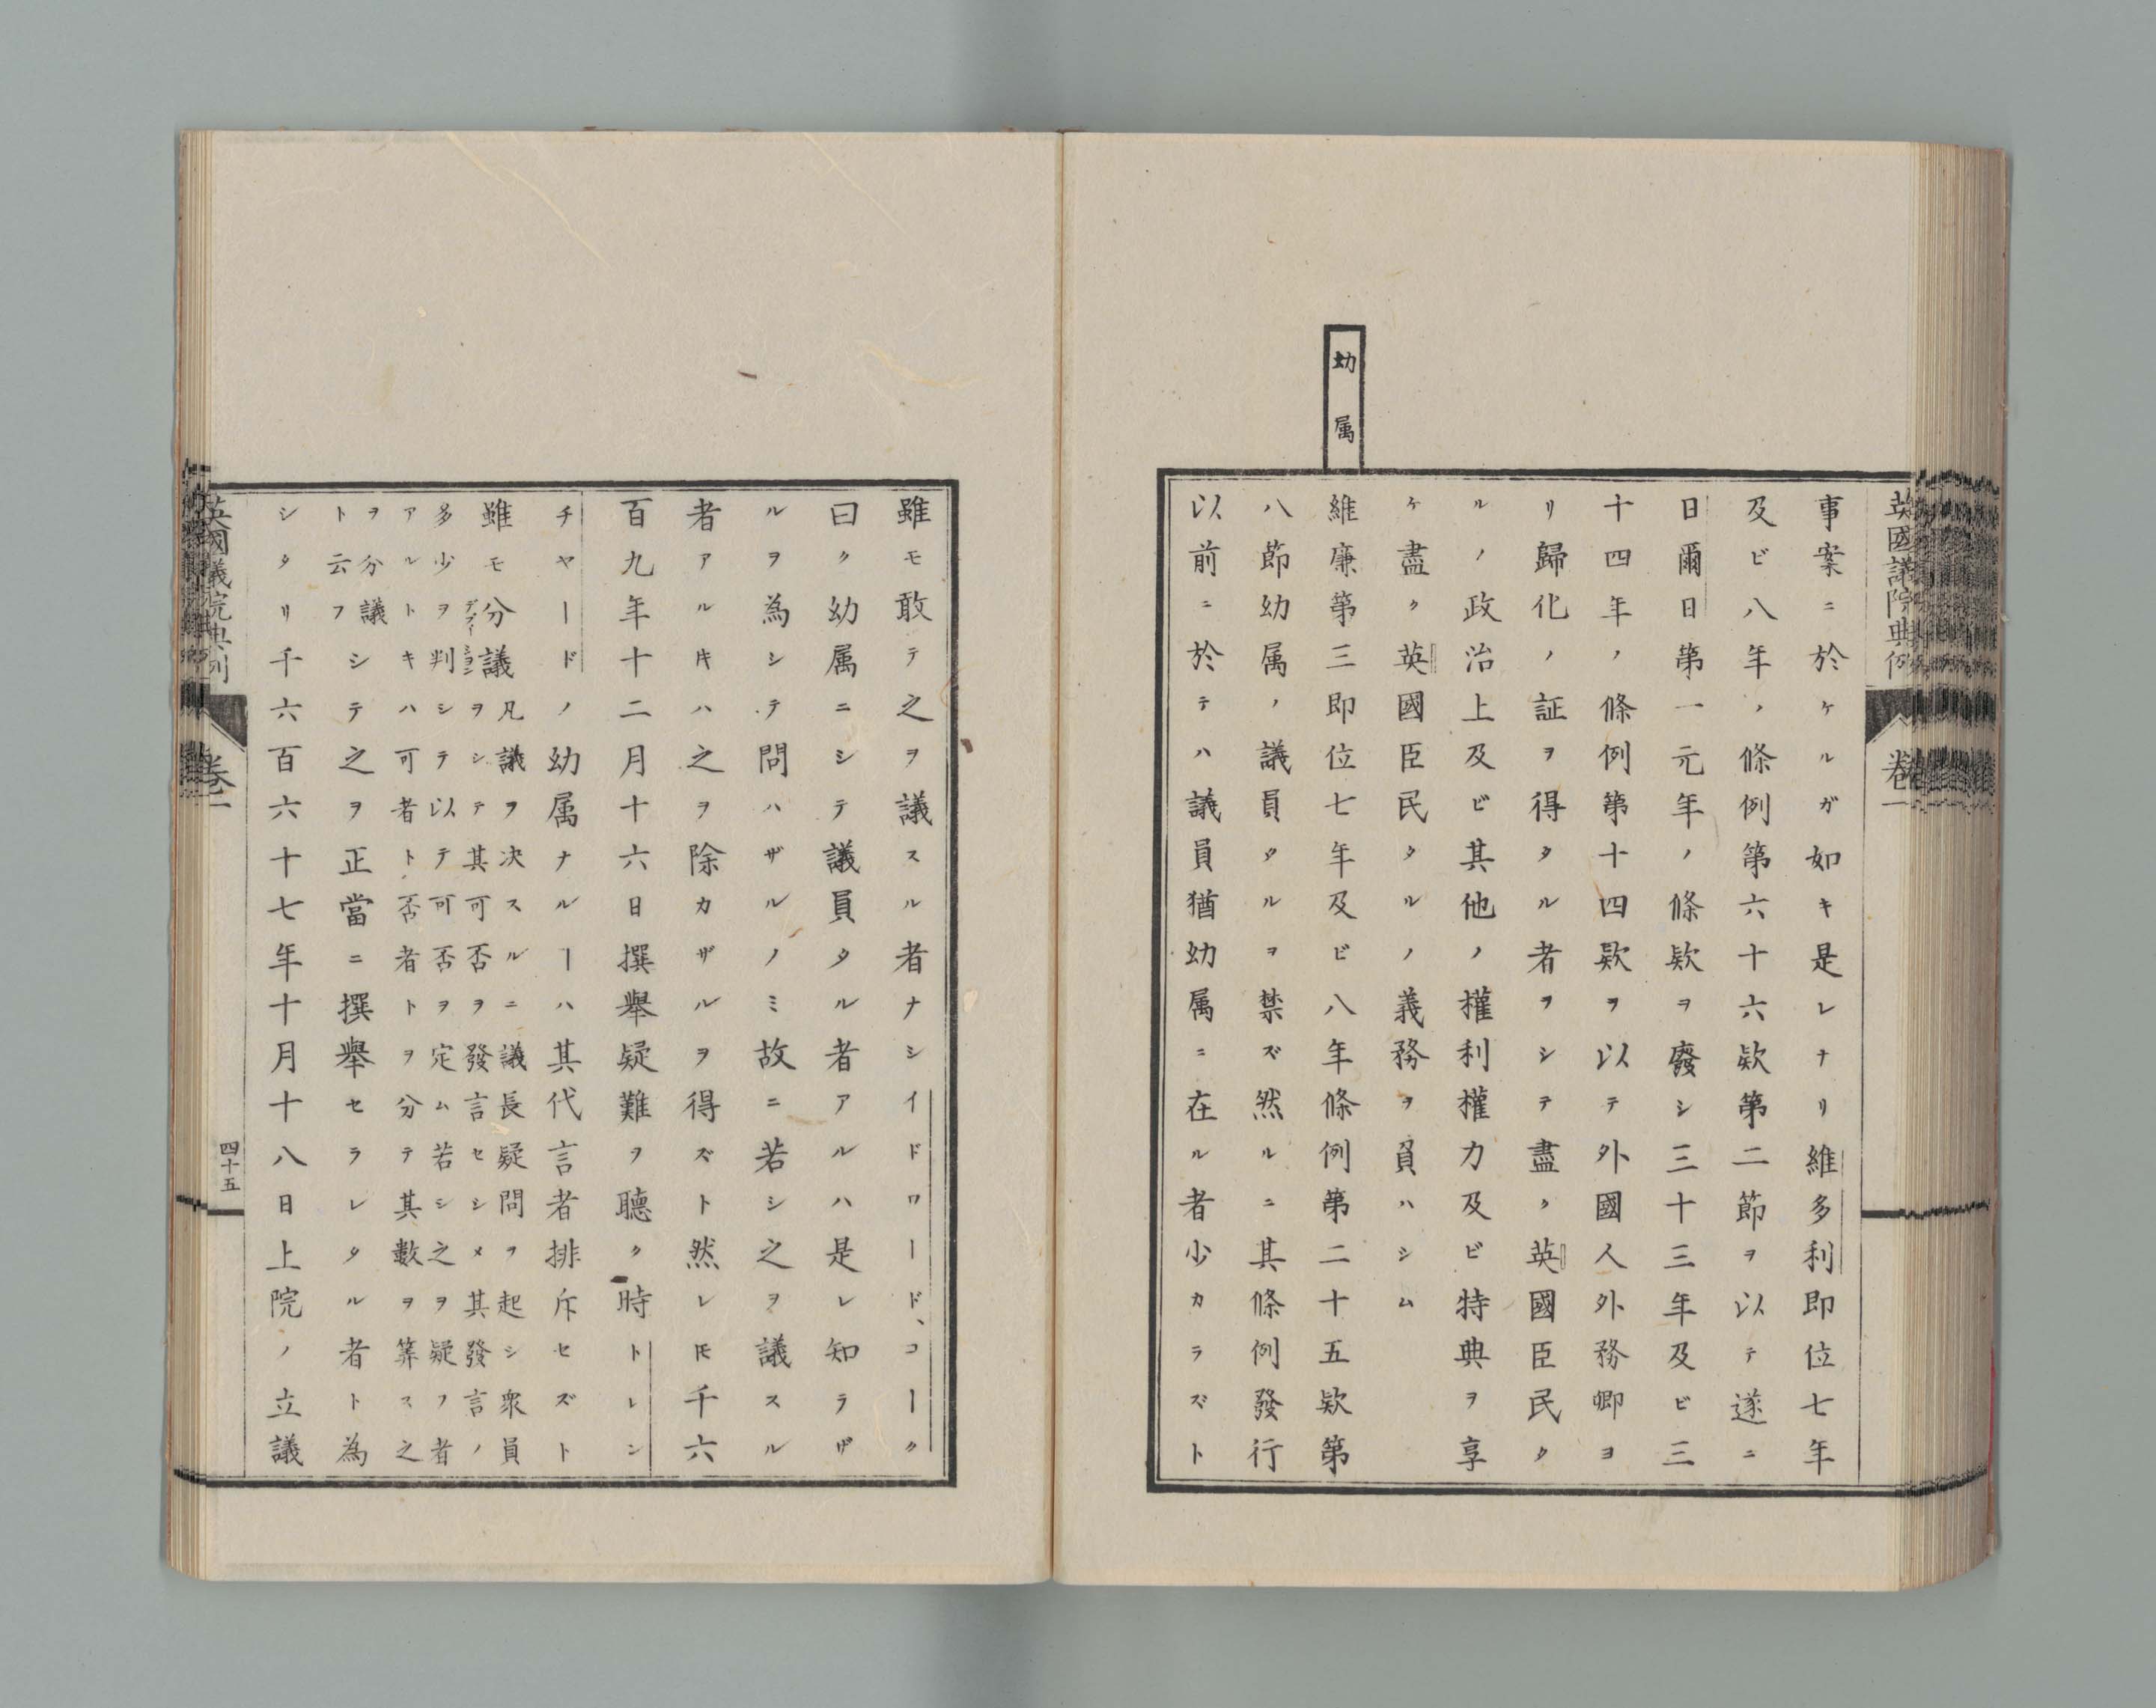 英國議院典例
卷一
事案ニ於ケルガ如キ是レナリ維多利即位七年
及ビ八年ノ條例第六十六欵第二節ヲ以テ遂ニ
日爾日第一元年ノ條欵ヲ廢シ三十三年及ビ三
十四年ノ條例第十四欵ヲ以テ外國人外務卿ヨ
リ歸化ノ証ヲ得タル者ヲシテ盡ク英國臣民タ
ルノ政治上及ビ其他ノ權利權力及ビ特典ヲ享
ケ盡ク英國臣民タルノ義務ヲ負ハシム
幼属
維廉第三即位七年及ビ八年條例第二十五欵第
八節幼属ノ議員タルヲ禁ズ然ルニ其條例發行
以前ニ於テハ議員猶幼属ニ在ル者少カラズト
雖モ敢テ之ヲ議スル者ナシイドワード、コーク
曰ク幼属ニシテ議員タル者アルハ是レ知ラザ
ルヲ為シテ問ハザルノミ故ニ若シ之ヲ議スル
者アルキハ之ヲ除カザルヲ得ズト然レ𪜈千六
百九年十二月十六日撰舉疑難ヲ聽ク時トレン
チヤードノ幼属ナルーハ其代言者排斥セズト
雖モ分議
デブイーシヨン
凡議ヲ決スルニ議長疑問ヲ起シ衆員
ヲシテ其可否ヲ發言セシメ其發言ノ
多少ヲ判シテ以テ可否ヲ定ム若シ之ヲ疑フ者
アルトキハ可者ト否者トヲ分テ其數ヲ筭ス之
ヲ分議
ト云フ
シテ之ヲ正當ニ撰舉セラレタル者ト為
シタリ千六百六十七年十月十八日上院ノ立議
英國議院典例
卷一
四十五